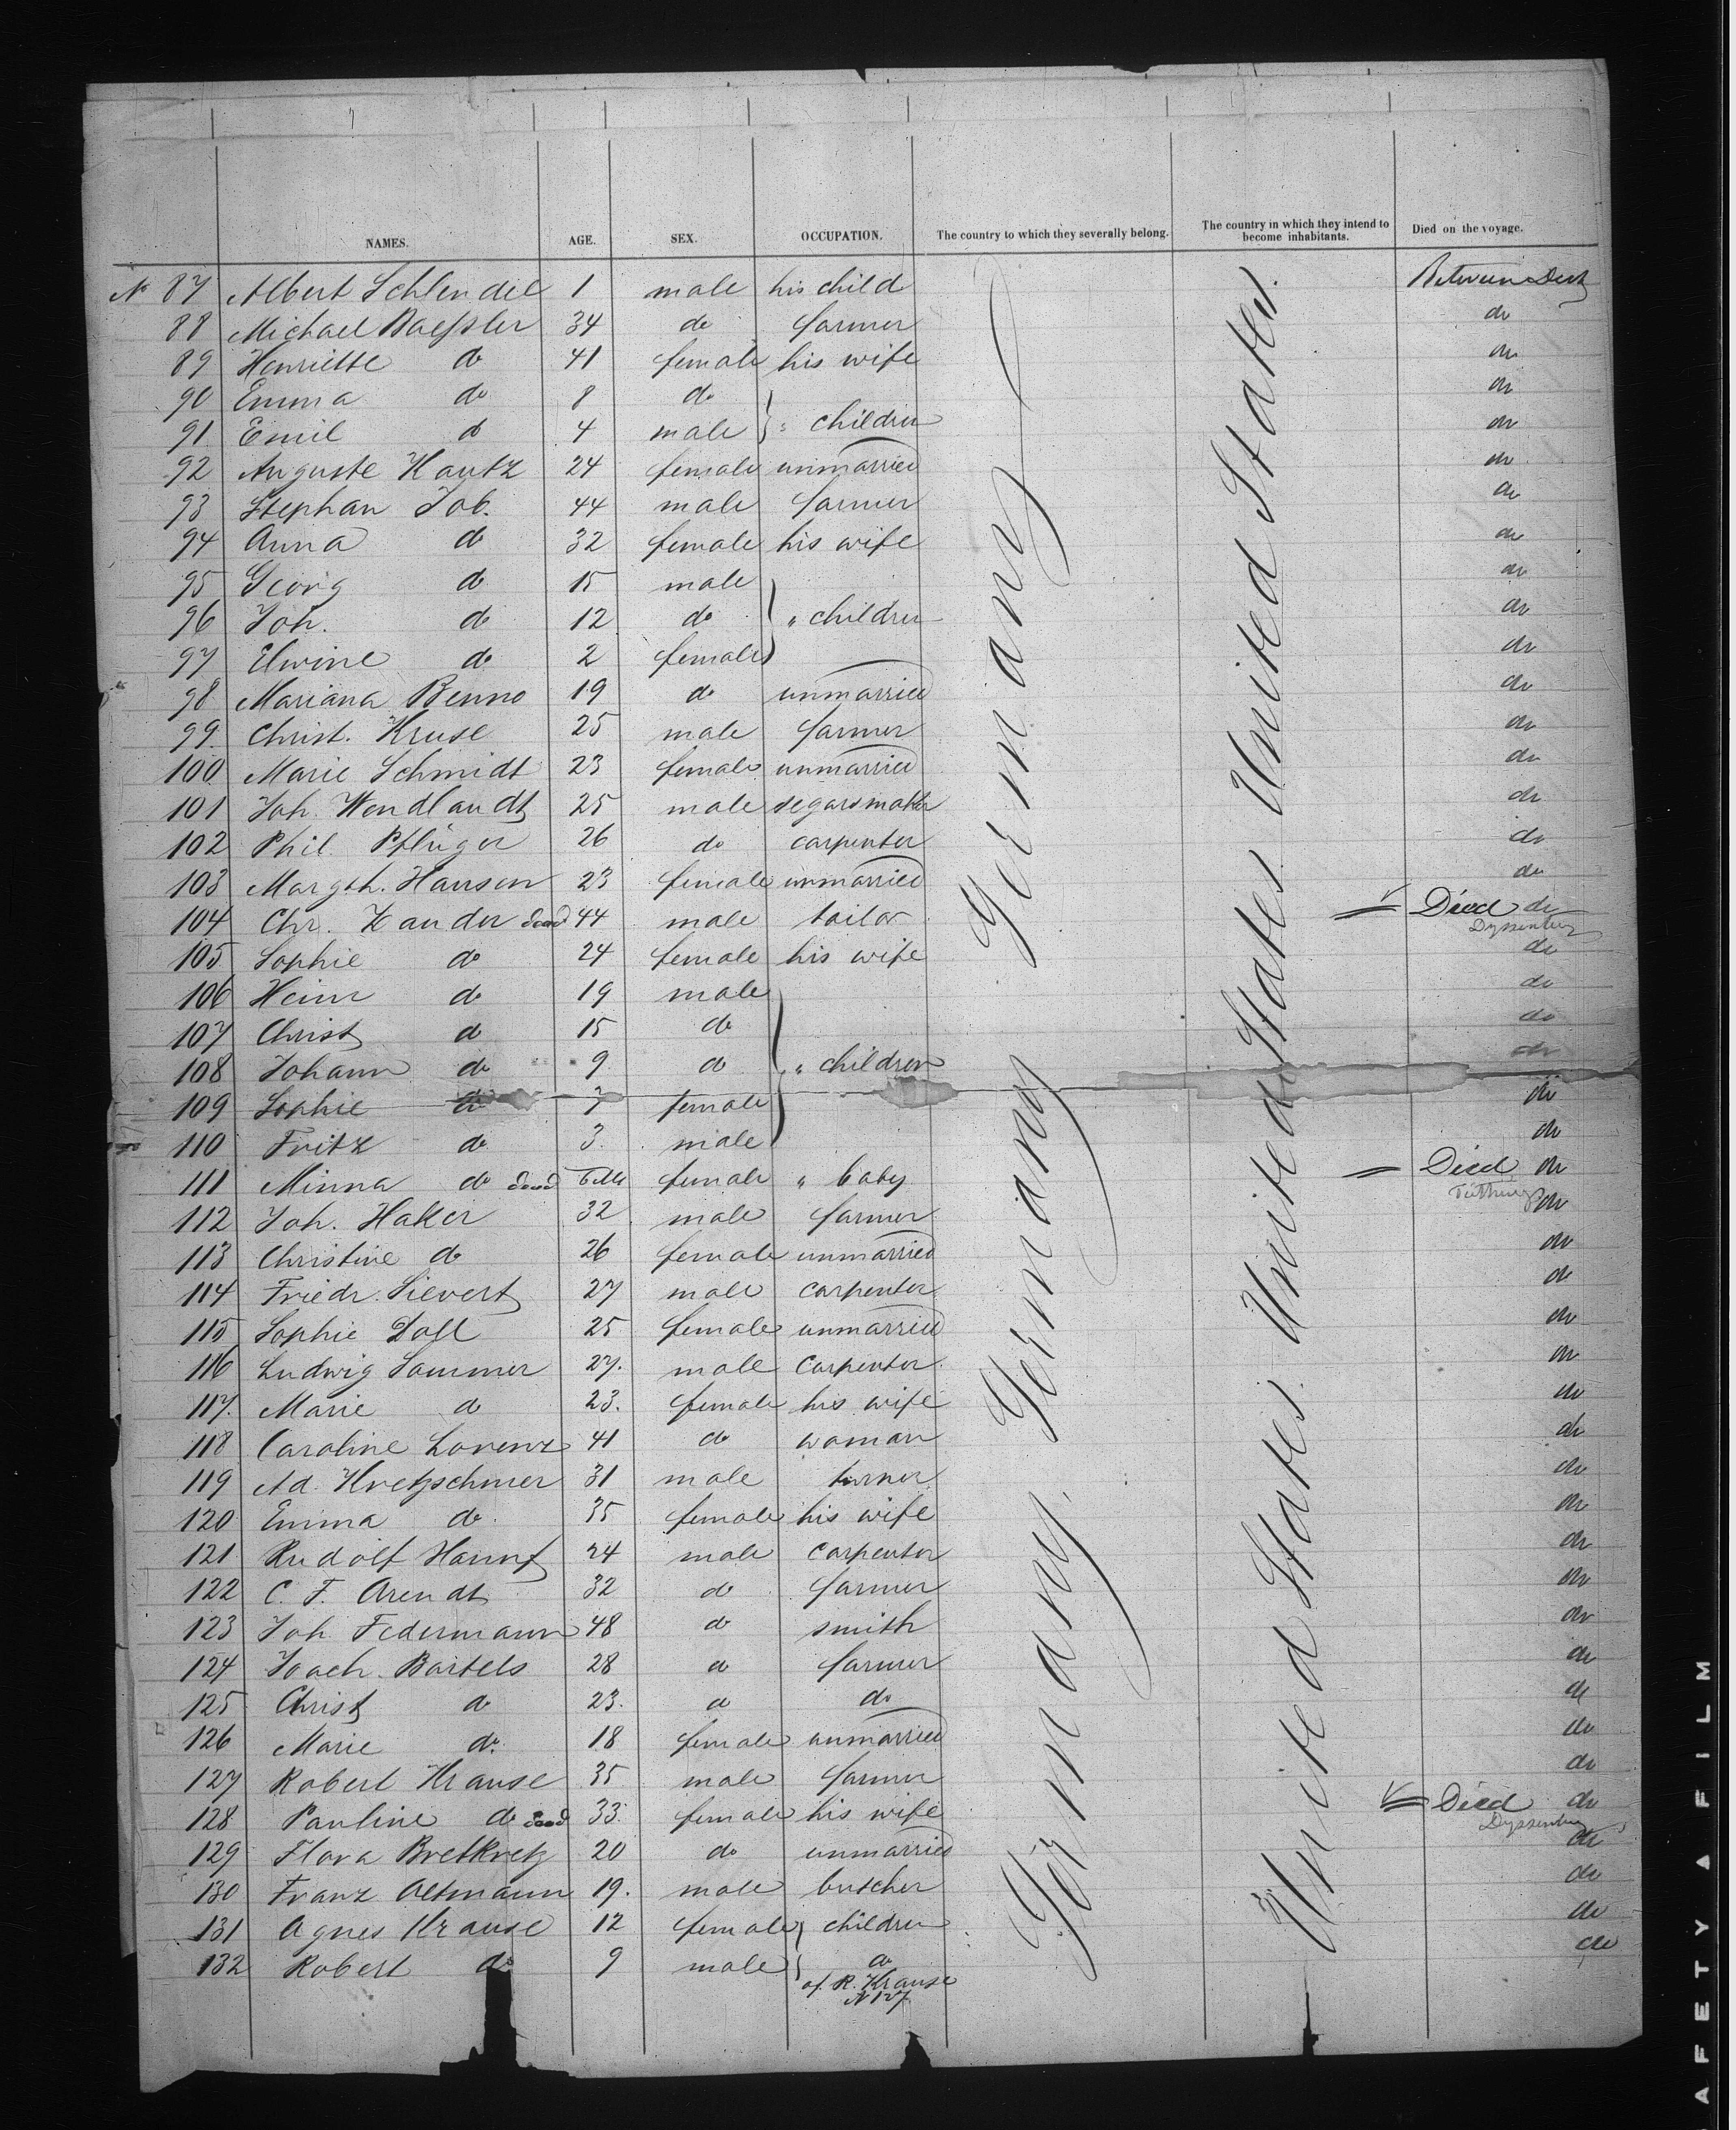 NAMES. AGE. SEX. OCCUPATION. The country to which they severally belong. The country in which they intend to become inhabitants. Died on the voyage.
No 87 Albert Schlendel 1 male his child Between Deck
88 Michael Baeßler 34 do farmer do
89 Henriette do 41 female his wife do
90 Emma do 8 do do
91 Emil do 4 male } " children do
92 Auguste Kautz 24 female unmarried do
93 Stephan Job. 44 male farmer do
94 Anna do 32 female his wife do
95 Georg do 15 male do
96 Joh. do 12 do } " children do
97 Elwine do 2 female do
98 Mariana Benno 19 do unmarried do
99 Christ. Kruse 25 male farmer do
100 Marie Schmidt 23 female unmarried do
101 Joh. Wendlandt 25 male segarsmaker do
102 Phil. Pflüger 26 do carpenter do
103 Margth. Hansen 23 female unmarried do
104 Chr. Zander dead 44 male tailor Died do
Dyssentery
105 Sophie do 24 female his wife do
106 Heinr do 19 male do
107 Christ do 15 do do
108 Johann do 9 do } " children do
109 Sophie do 7 female do
110 Fritz do 3. male do
111 Minna do dead 6 Mt female " baby Died do
112 Joh. Haker 32 male farmer do
113 Christine do 26 female unmarried do
114 Friedr. Sievert 27 male carpenter do
115 Sophie Doll 25 female unmarried do
116 Ludwig Sommer 27. male carpenter do
117. Marie do 23. female his wife do
118 Caroline Lorenz 41 do woman do
119 Ad. Kretzschmer 31 male turner do
120 Emma do 35 female his wife do
121 Rudolf Hannf 24 male carpenter do
122 C. F. Arendt 32 do farmer do
123 Joh Federmann 48 do smith do
124 Joach. Bartels 28 do farmer do
125 Christ do 23. do do do
126 Marie do. 18 female unmarried do
127 Robert Krause 35 male farmer do
128 Pauline do dead 33. female his wife Died do
Dyssentery
129 Flora Bretkretz 20 do unmarried do
130 Franz Altmann 19. male butcher do
131 Agnes Krause 12 female } children do
132 Robert do 9 male } do do
of R. Krause
N 127
Germany
Germany
Germany.
United States.
United States.
United States.
AFETY ▲ FILM